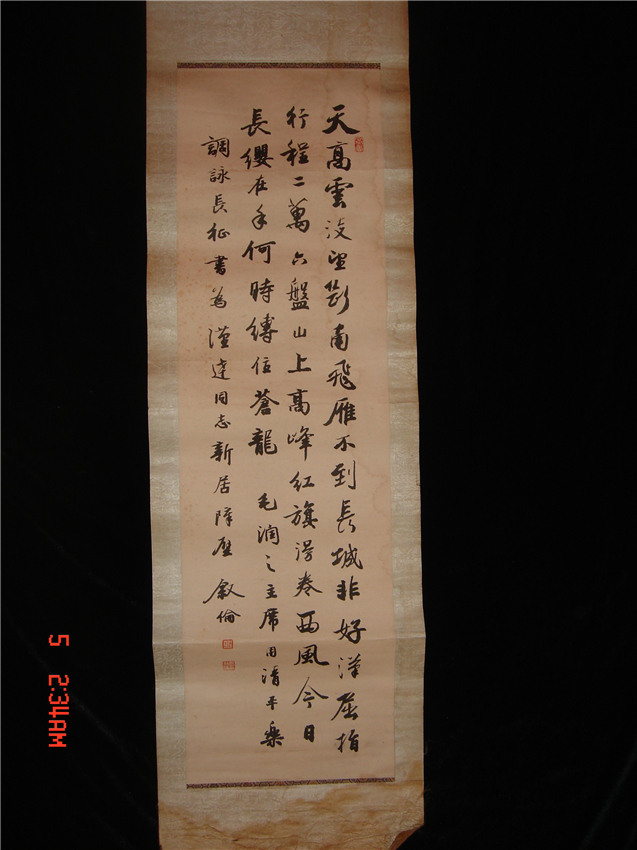 天高雲淡望斷南飛雁不到長城非好漢屈指
行程二萬六盤山上高峰紅旗漫卷西風今日
長纓在手何時縛住蒼龍 毛潤之主席用清平樂
調詠長征書為漢達同志新居障壁 敘倫
5 2:34AM